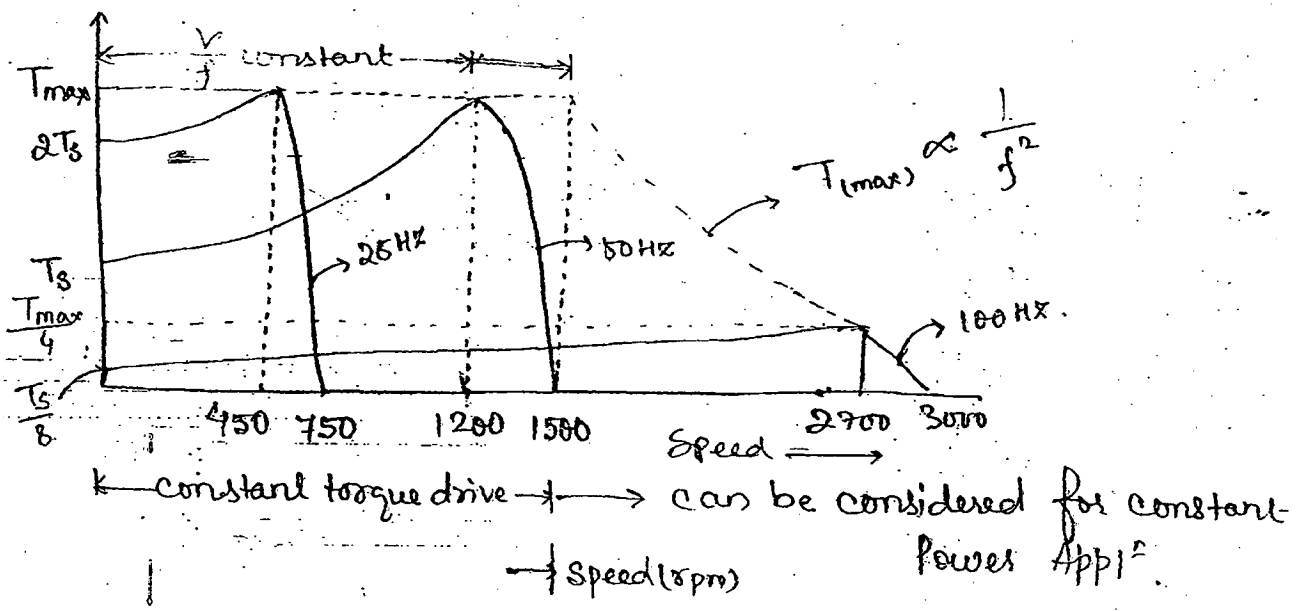 V/f constant
Tmax
2Ts
T(max) ∝ 1/f²
25HZ
50HZ
Ts
Tmax/4
100HZ.
Ts/8
450 750 1200 1500 2700 3000
Speed
constant torque drive can be considered for constant-
Power Appln.
Speed(rpm)